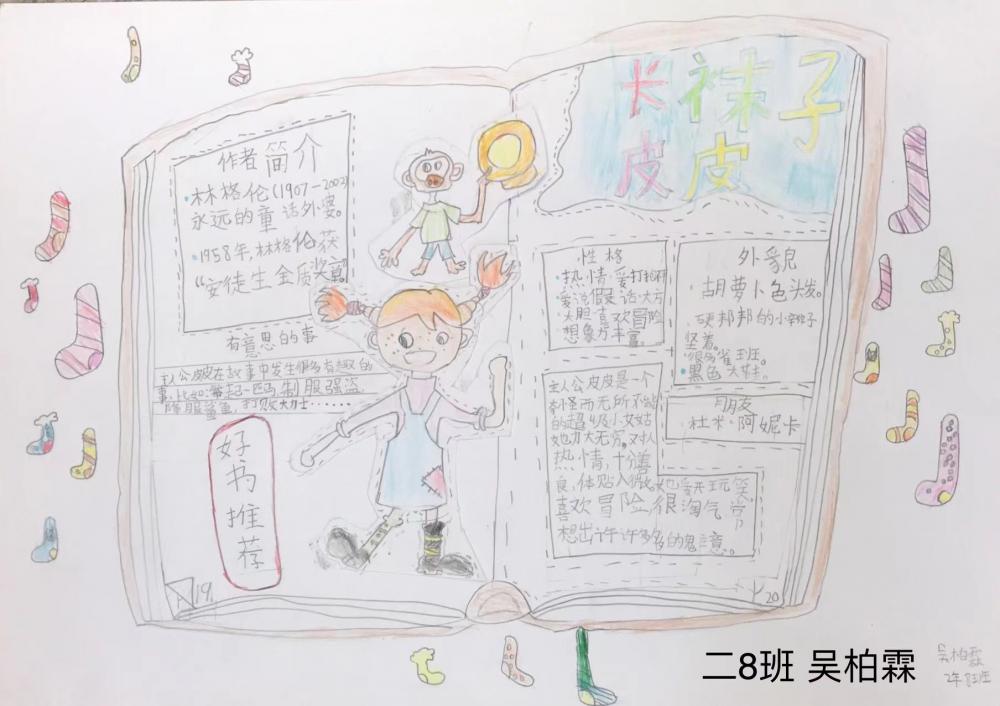 长袜子
皮皮
作者简介
·林格伦(1907-2002)
永远的童话外婆。
·1958年,林格伦获
“安徒生金质奖章”
有意思的事
主人公皮皮在故事中发生很多有趣的
事,比如:举起一匹马,制服强盗,
降服鲨鱼,打败大力士……
好书推荐
19
性格
·热情·爱打抱不平
·爱说假话·大方
·大胆·喜欢冒险
·想象力丰富
外貌
·胡萝卜色头发。
·硬邦邦的小辫子
竖着。
·很多雀斑。
·黑色大鞋。
朋友
·杜米·阿妮卡
主人公皮皮是一个
奇怪而无所不能
的超级小女姑
她力大无穷。对人
热情,十分善
良,体贴入微。也爱开玩笑
喜欢冒险,很淘气,常
想出许许多多的鬼主意。
20
二8班 吴柏霖
吴柏霖
2年8班